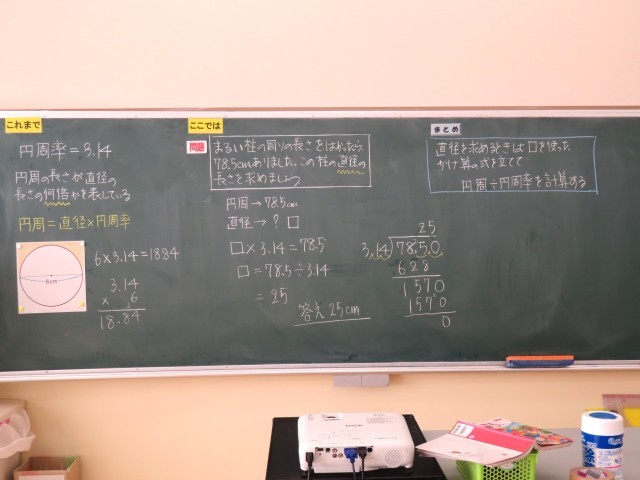 これまで
円周率=3.14
円周の長さが直径の
長さの何倍かを表している
円周=直径×円周率
6cm
6×3.14=1884
3.14
× 6
18.84
ここでは
問題
まるい柱の周りの長さをはかったら
78.5cmありました。この柱の直径の
長さを求めましょう
円周→78.5cm
直径→? □
□×3.14=78.5
□=78.5÷3.14
=25
答え 25cm
25
3.14)78.50
628
1570
1570
0
まとめ
直径を求めるときは□を使った
かけ算の式を立てて
円周÷円周率を計算する